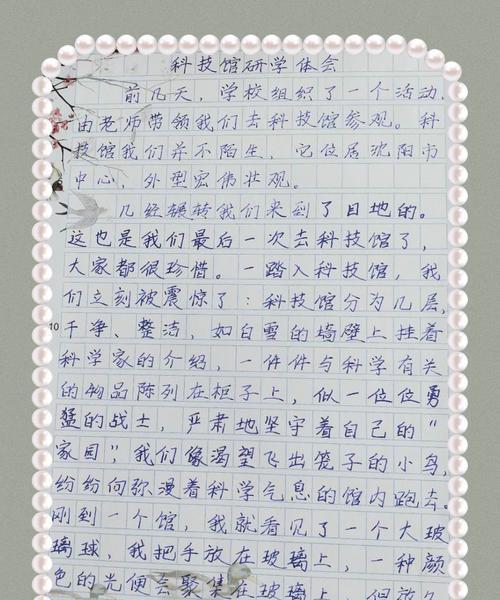 科技馆研学体会
前几天，学校组织了一个活动，
由老师带领我们去科技馆参观。科
技馆我们并不陌生，它位居沈阳市
中心，外型宏伟壮观。
几经辗转我们来到了目地的。
这也是我们最后一次去科技馆了，
大家都很珍惜。一踏入科技馆，我
们立刻被震惊了：科技馆分为几层，
10
干净、整洁，如白雪的墙壁上挂着
科学家的介绍，一件件与科学有关
的物品陈列在柜子上，似一位位勇
猛的战士，严肃地坚守着自己的“
家园”，我们像渴望飞出笼子的小鸟，
纷纷向弥漫着科学气息的馆内跑去。
刚到一个馆，我就看见了一个大玻
璃球，我把手放在玻璃上，一种颜
色的光便会聚集在玻璃上，但放久